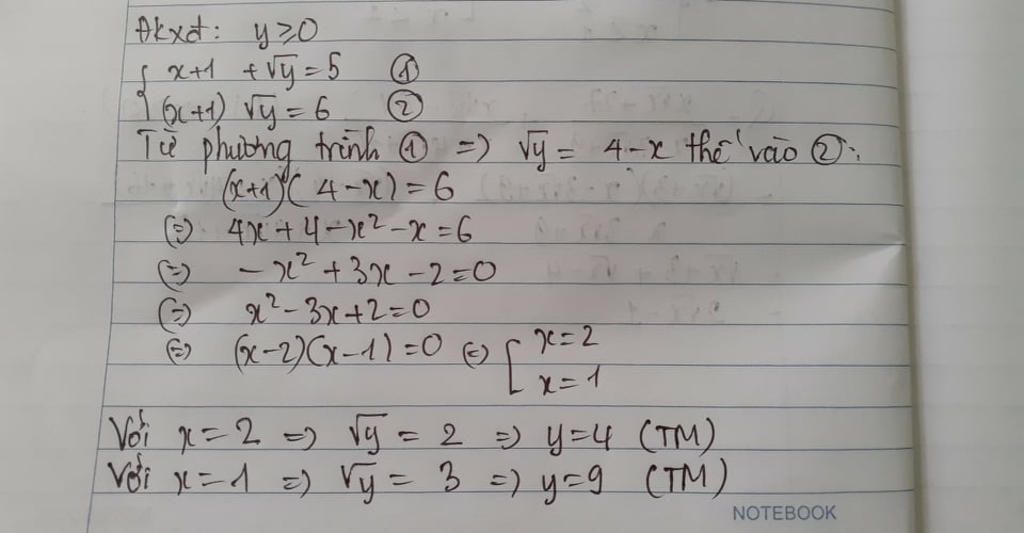 Đkxđ: y ≥ 0
{ x+1 + √y = 5 ①
(x+1) √y = 6 ②
Từ phương trình ① => √y = 4-x thế vào ②:
(x+1)(4-x) = 6
(=) 4x + 4 - x² - x = 6
(=) -x² + 3x - 2 = 0
(=) x² - 3x + 2 = 0
(=) (x-2)(x-1) = 0 (=) [ x = 2
x = 1
Với x = 2 => √y = 2 => y = 4 (TM)
Với x = 1 => √y = 3 => y = 9 (TM)
NOTEBOOK